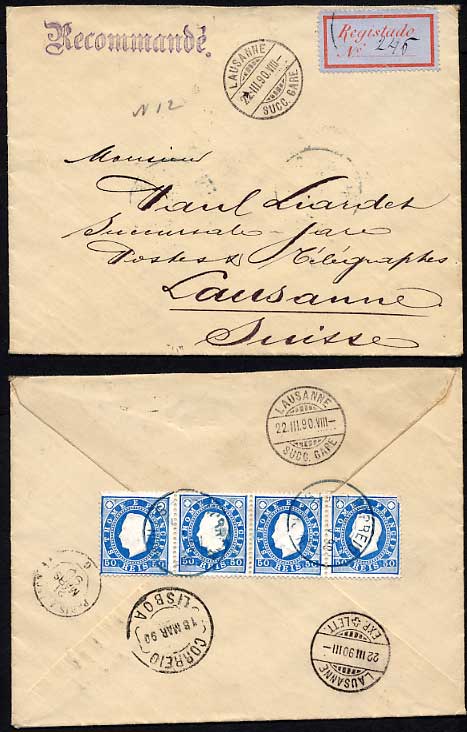 Recommandé.
Registado
No. 245
LAUSANNE
22.III.90.VIII-
SUCC. GARE
N 12
Monsieur
Paul Liardet
Succursale-gare
Postes & Télégraphes
Lausanne
Suisse
LAUSANNE
22.III.90.VIII-
SUCC. GARE
S. THOMÉ E PRINCIPE
50 REIS 50
S. THOMÉ E PRINCIPE
50 REIS 50
S. THOMÉ E PRINCIPE
50 REIS 50
S. THOMÉ E PRINCIPE
50 REIS 50
PARIS
21
90
CORREIO
18 MAR 90
LISBOA
LAUSANNE
22 III 90 III-
EXP. LETT.